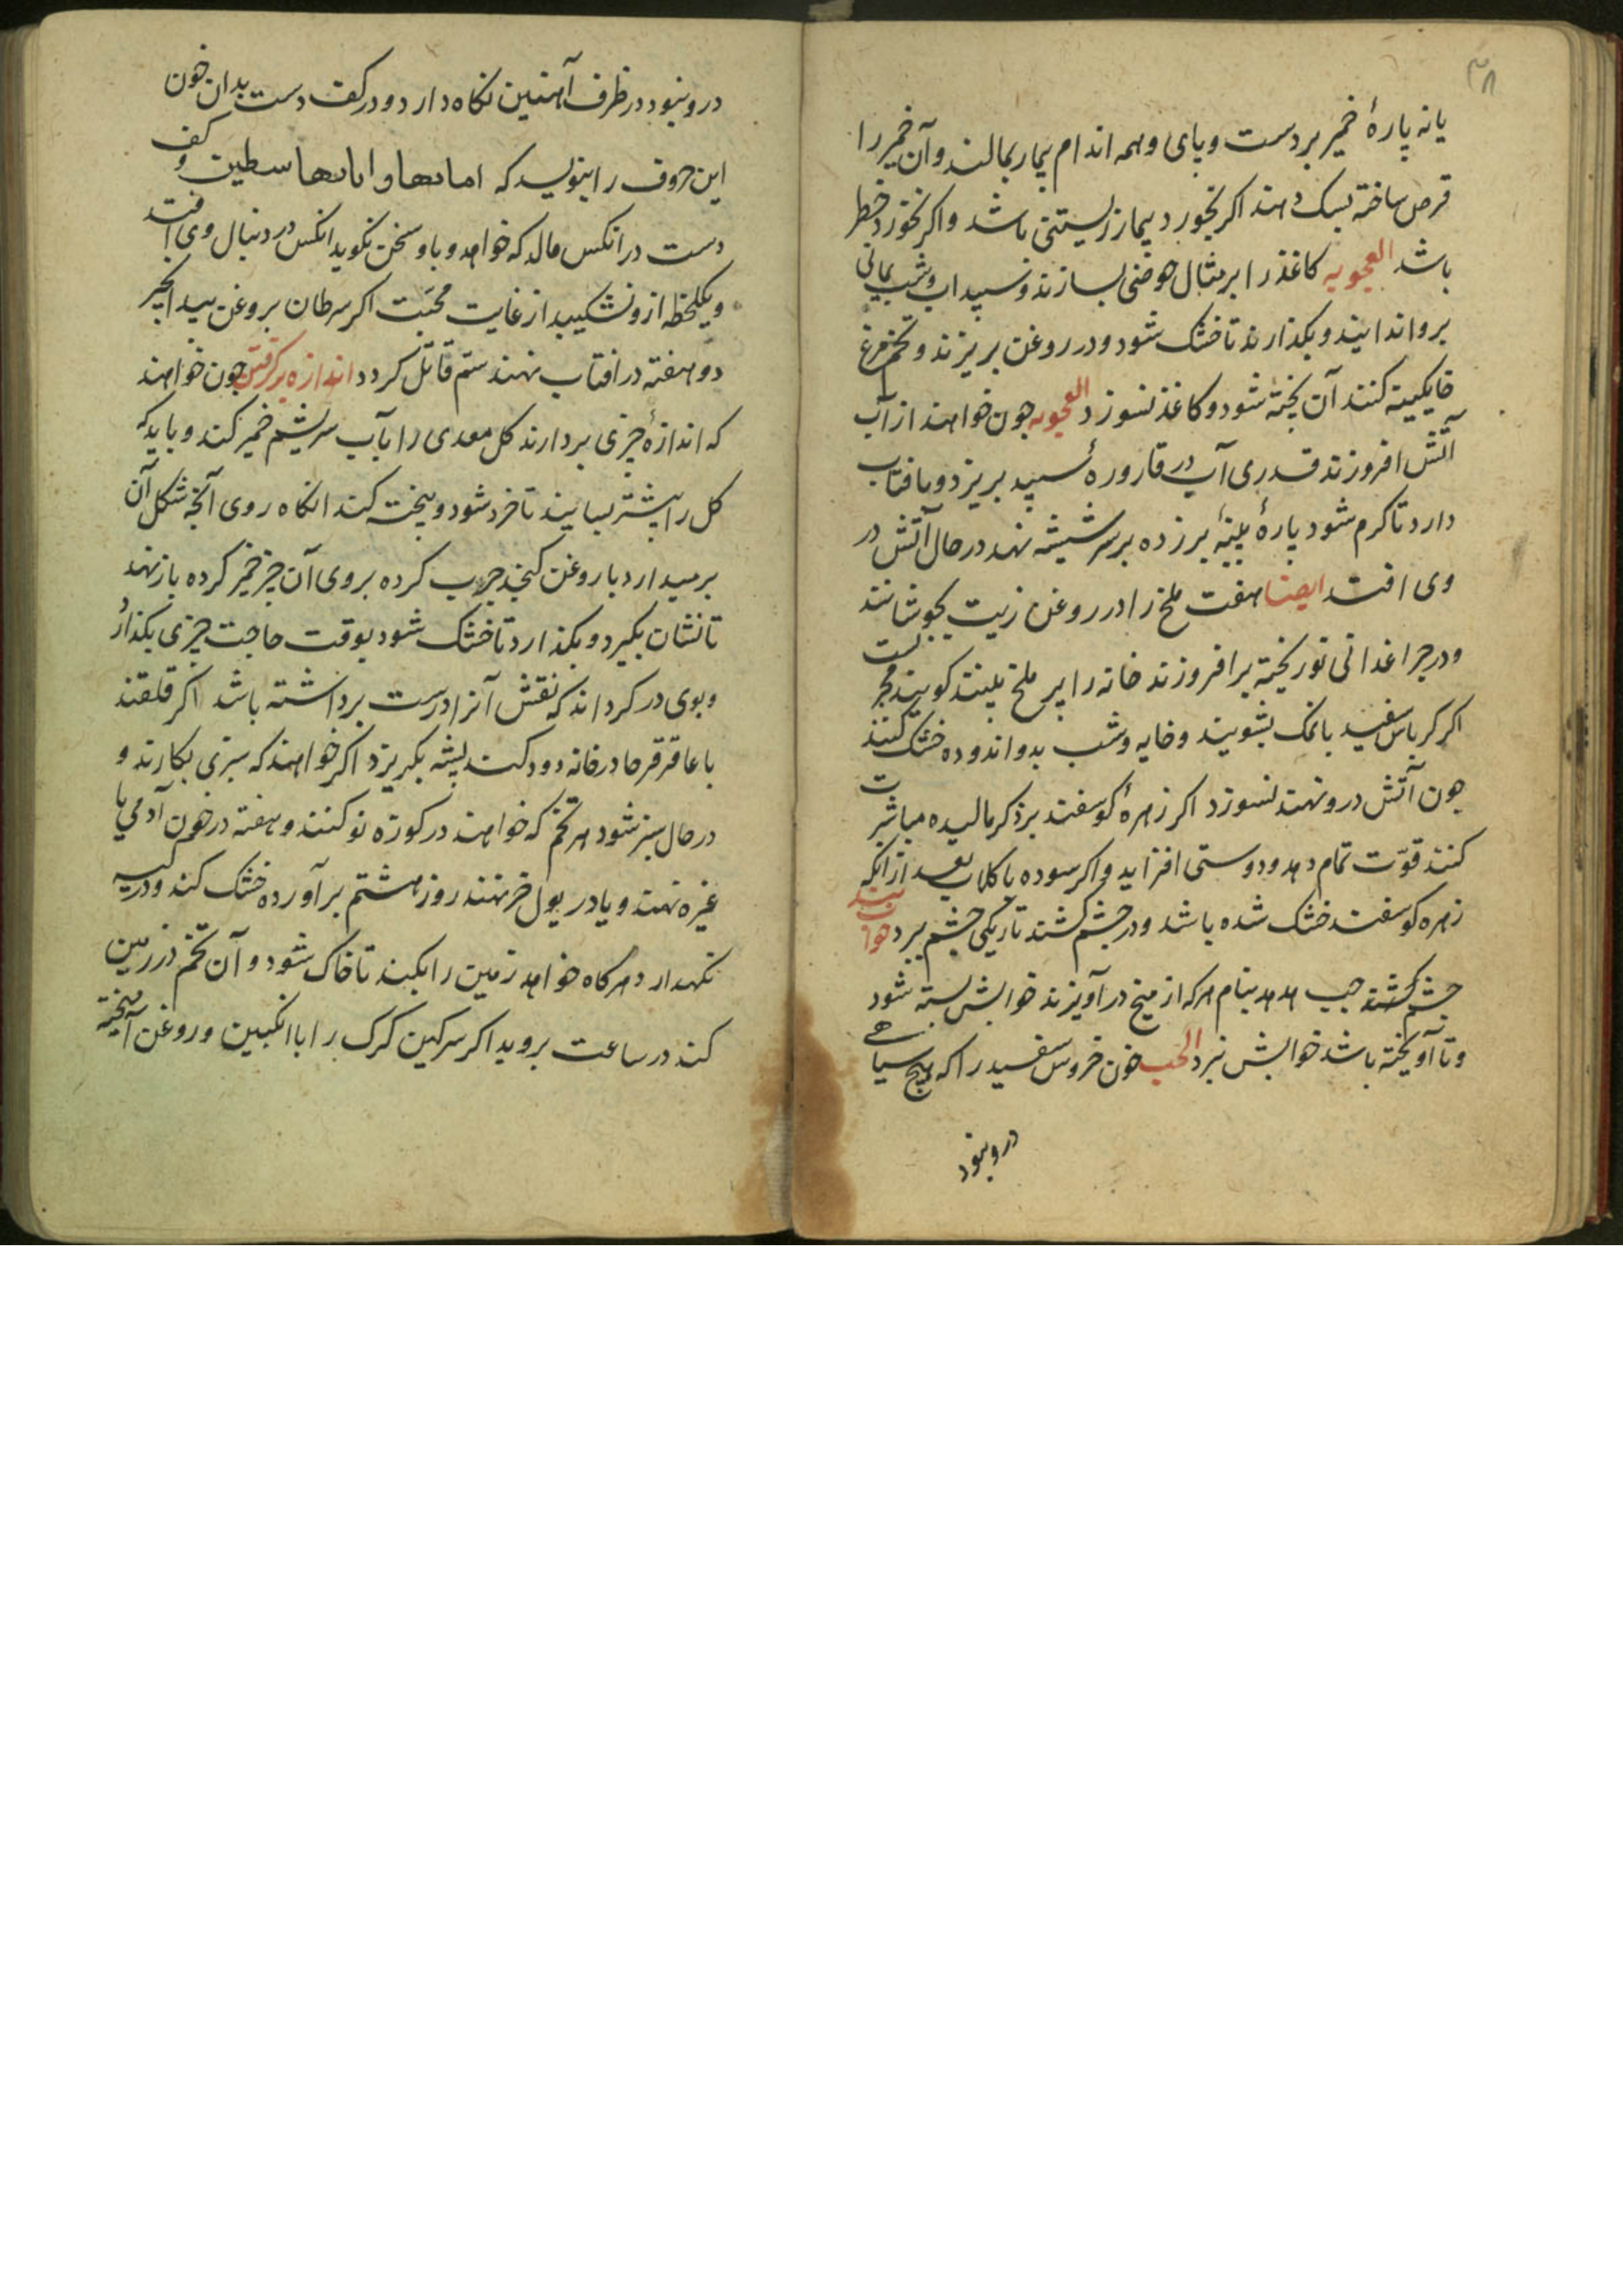 ۳۸
یا نه پارهٔ خمیر بر دست و پای و همه اندام بیمار بمالند و آن خمیر را
قرص ساخته بسک دهند اکر بخورد بیمار زیستنی باشد و اکر نخورد خطر
باشد العجوبه کاغذ را بر مثال حوضی بسازند و سپیداب و شب یمانی
برو اندایند و بکذارند تا خشک شود و در روغن بریزند و تخم مرغ
خایکینه کنند آن پخته شود و کاغذ نسوزد العجوبه جون خواهند از آب
آتش افروزند قدری آب در قارورهٔ سپید بریزد و بافتاب
دارد تا کرم شود پارهٔ پلیتهٔ برزده بر سر شیشه نهد در حال آتش در
وی افتد ایضا هفت ملخ را در روغن زیت بجوشانند
و در جراغدانی نو ریخته برافروزند خانه را پر ملخ بینند کویند مجربست
اکر کرباس سفید بانمک بشویند و خایه و شب بدو اندوده خشک کنند
جون آتش درو نهند نسوزد اکر زهرهٔ کوسفند بر ذکر مالیده مباشرت
کنند قوّت تمام دهد و دوستی افزاید و اکر سوده با کلاب بعد از انکه
زهره کوسفند خشک شده باشد و در جشم کشند تاریکی جشم ببرد خواب بند
جشم کشند جب هدهد بنام هرکه از میخ درآویزند خوابش بسته شود
و تا آویخته باشد خوابش نبرد الحب خون خروس سفید را که هیج سیاهی
درو نبود
درو نبود در ظرف آهنین نکاه دارد و در کف دست بدان خون
این حروف را بنویسد که اماںها و اباںها سطیں و کف
دست در انکس مالد که خواهد و با او سخن نکوید انکس در دنبال وی افتد
و یکلحظه ازو نشکیبد از غایت محبّت اکر سرطان بروغن بید انجیر
دو هفته در افتاب نهند سم قاتل کردد اندازه برکرفتن جون خواهند
که اندازهٔ جیزی بردارند کل معدی را بآب سریشم خمیر کند و باید که
کل را پیشتر بسایند تا خرد شود و بیخت کند انکاه روی آنجه شکل آن
برمیدارد با روغن کنجد جرب کرده بروی آن جیز خمیر کرده باز نهد
تا نشان بکیرد و بکذارد تا خشک شود بوقت حاجت جیزی بکذارد
و بوی در کرداند که نقش آنرا درست برداشته باشد اکر قلقند
با عاقرقرحا در خانه دود کنند پشه بکریزد اکر خواهند که سبزی بکارند و
در حال سبز شود هر تخم که خواهند در کوزه نو کنند و هفته در خون آدمی یا
غیره نهند و یا در بول خر نهند روز هشتم برآورده خشک کند و در کیسه
نکهدارد هرکاه خواهد زمین را بکند تا خاک شود و آن تخم در زمین
کند در ساعت بروید اکر سرکین کرک را با انکبین و روغن آمیخته